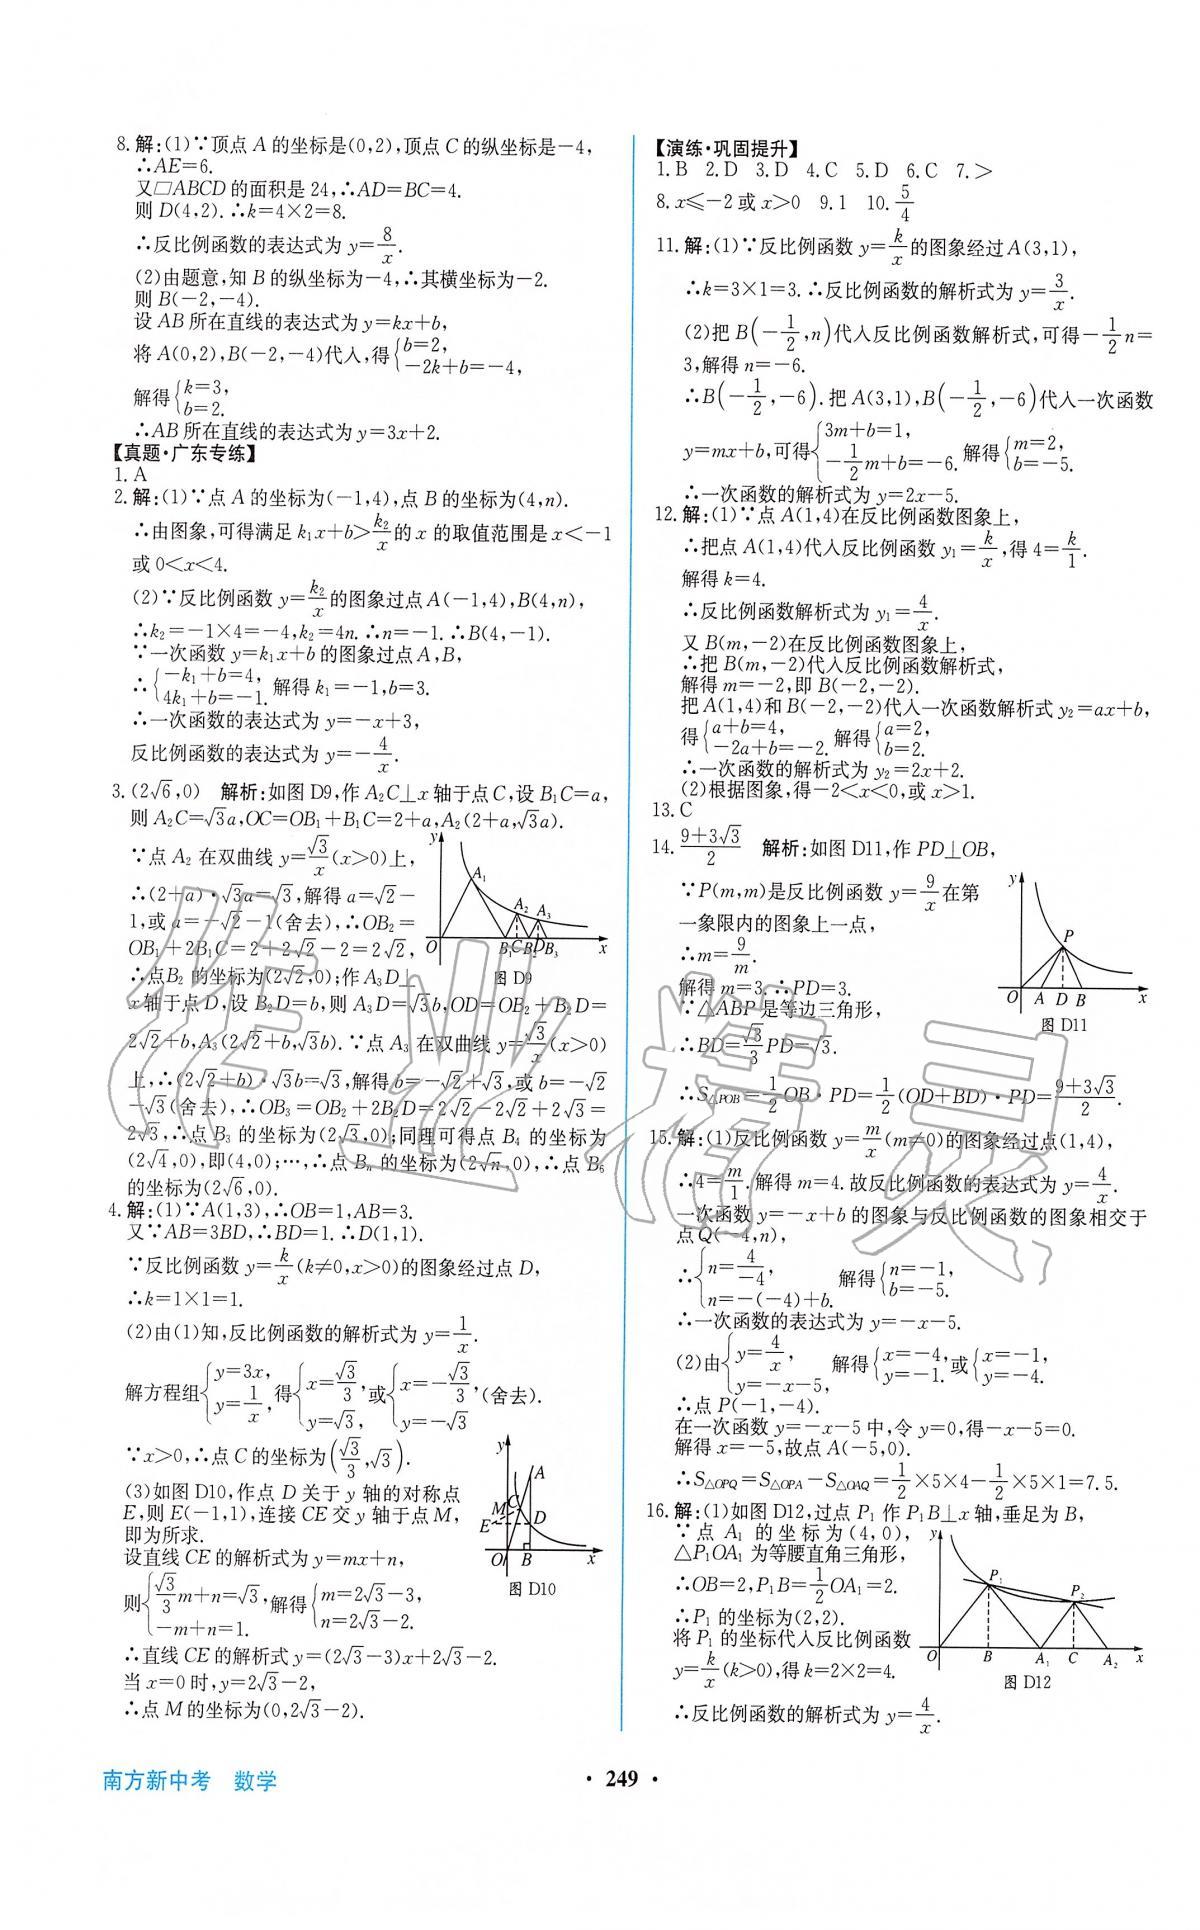 8. 解:(1)∵顶点 A 的坐标是(0,2),顶点 C 的纵坐标是−4,
∴AE=6.
又▱ABCD 的面积是 24,∴AD=BC=4.
则 D(4,2).∴k=4×2=8.
∴反比例函数的表达式为 y=8/x.
(2)由题意,知 B 的纵坐标为−4,∴其横坐标为−2.
则 B(−2,−4).
设 AB 所在直线的表达式为 y=kx+b,
将 A(0,2),B(−2,−4)代入,得{b=2, −2k+b=−4,
解得{k=3, b=2.
∴AB 所在直线的表达式为 y=3x+2.
【真题·广东专练】
1. A
2. 解:(1)∵点 A 的坐标为(−1,4),点 B 的坐标为(4,n).
∴由图象,可得满足 k₁x+b>k₂/x 的 x 的取值范围是 x<−1
或 0<x<4.
(2)∵反比例函数 y=k₂/x 的图象过点 A(−1,4),B(4,n),
∴k₂=−1×4=−4,k₂=4n.∴n=−1.∴B(4,−1).
∵一次函数 y=k₁x+b 的图象过点 A,B,
∴{−k₁+b=4, 4k₁+b=−1. 解得 k₁=−1,b=3.
∴一次函数的表达式为 y=−x+3,
反比例函数的表达式为 y=−4/x.
3. (2√6,0) 解析:如图 D9,作 A₂C⊥x 轴于点 C,设 B₁C=a,
则 A₂C=√3a,OC=OB₁+B₁C=2+a,A₂(2+a,√3a).
∵点 A₂ 在双曲线 y=√3/x(x>0)上,
∴(2+a)·√3a=√3,解得 a=√2−
1,或 a=−√2−1(舍去),∴OB₂=
OB₁+2B₁C=2+2√2−2=2√2,
∴点B₂ 的坐标为(2√2,0);作 A₃D⊥
x 轴于点 D,设 B₂D=b,则 A₃D=√3b,OD=OB₂+B₂D=
2√2+b,A₃(2√2+b,√3b).∵点 A₃ 在双曲线 y=√3/x(x>0)
上,∴(2√2+b)·√3b=√3,解得 b=−√2+√3,或 b=−√2
−√3(舍去),∴OB₃=OB₂+2B₂D=2√2−2√2+2√3=
2√3,∴点 B₃ 的坐标为(2√3,0);同理可得点 B₄ 的坐标为
(2√4,0),即(4,0);…,∴点 Bₙ 的坐标为(2√n,0),∴点 B₆
的坐标为(2√6,0).
y A₁ A₂ A₃ O B₁ C B₂ D B₃ x
图 D9
4. 解:(1)∵A(1,3),∴OB=1,AB=3.
又∵AB=3BD,∴BD=1.∴D(1,1).
∵反比例函数 y=k/x(k≠0,x>0)的图象经过点 D,
∴k=1×1=1.
(2)由(1)知,反比例函数的解析式为 y=1/x.
解方程组{y=3x, y=1/x, 得{x=√3/3, y=√3, 或{x=−√3/3, y=−√3 (舍去).
∵x>0,∴点 C 的坐标为(√3/3,√3).
(3)如图 D10,作点 D 关于 y 轴的对称点
E,则 E(−1,1),连接 CE 交 y 轴于点 M,
即为所求.
设直线 CE 的解析式为 y=mx+n,
则{√3/3 m+n=√3, −m+n=1. 解得{m=2√3−3, n=2√3−2.
∴直线 CE 的解析式 y=(2√3−3)x+2√3−2.
当 x=0 时,y=2√3−2,
∴点 M 的坐标为(0,2√3−2).
y A C M E D O B x
图 D10
【演练·巩固提升】
1. B 2. D 3. D 4. C 5. D 6. C 7. >
8. x⩽−2 或 x>0 9. 1 10. 5/4
11. 解:(1)∵反比例函数 y=k/x 的图象经过 A(3,1),
∴k=3×1=3.∴反比例函数的解析式为 y=3/x.
(2)把 B(−1/2,n)代入反比例函数解析式,可得−1/2 n=
3,解得 n=−6.
∴B(−1/2,−6).把 A(3,1),B(−1/2,−6)代入一次函数
y=mx+b,可得{3m+b=1, −1/2 m+b=−6. 解得{m=2, b=−5.
∴一次函数的解析式为 y=2x−5.
12. 解:(1)∵点 A(1,4)在反比例函数图象上,
∴把点 A(1,4)代入反比例函数 y₁=k/x,得 4=k/1.
解得 k=4.
∴反比例函数解析式为 y₁=4/x.
又 B(m,−2)在反比例函数图象上,
∴把 B(m,−2)代入反比例函数解析式,
解得 m=−2,即 B(−2,−2).
把 A(1,4)和 B(−2,−2)代入一次函数解析式 y₂=ax+b,
得{a+b=4, −2a+b=−2. 解得{a=2, b=2.
∴一次函数的解析式为 y₂=2x+2.
(2)根据图象,得−2<x<0,或 x>1.
13. C
14. (9+3√3)/2 解析:如图 D11,作 PD⊥OB,
∵P(m,m)是反比例函数 y=9/x 在第
一象限内的图象上一点,
∴m=9/m.
解得 m=3.∴PD=3.
∵△ABP 是等边三角形,
∴BD=√3/3 PD=√3.
∴S△POB=1/2 OB·PD=1/2(OD+BD)·PD=(9+3√3)/2.
y P O A D B x
图 D11
15. 解:(1)反比例函数 y=m/x(m≠0)的图象经过点(1,4),
∴4=m/1.解得 m=4.故反比例函数的表达式为 y=4/x.
一次函数 y=−x+b 的图象与反比例函数的图象相交于
点 Q(−4,n),
∴{n=4/−4, n=−(−4)+b. 解得{n=−1, b=−5.
∴一次函数的表达式为 y=−x−5.
(2)由{y=4/x, y=−x−5, 解得{x=−4, y=−1. 或{x=−1, y=−4.
∴点 P(−1,−4).
在一次函数 y=−x−5 中,令 y=0,得−x−5=0.
解得 x=−5,故点 A(−5,0).
∴S△OPQ=S△OPA−S△OAQ=1/2×5×4−1/2×5×1=7.5.
16. 解:(1)如图 D12,过点 P₁ 作 P₁B⊥x 轴,垂足为 B,
∵点 A₁ 的坐标为(4,0),
△P₁OA₁ 为等腰直角三角形,
∴OB=2,P₁B=1/2 OA₁=2.
∴P₁ 的坐标为(2,2).
将 P₁ 的坐标代入反比例函数
y=k/x(k>0),得 k=2×2=4.
∴反比例函数的解析式为 y=4/x.
y P₁ P₂ O B A₁ C A₂ x
图 D12
作业精灵
南方新中考 数学
· 249 ·